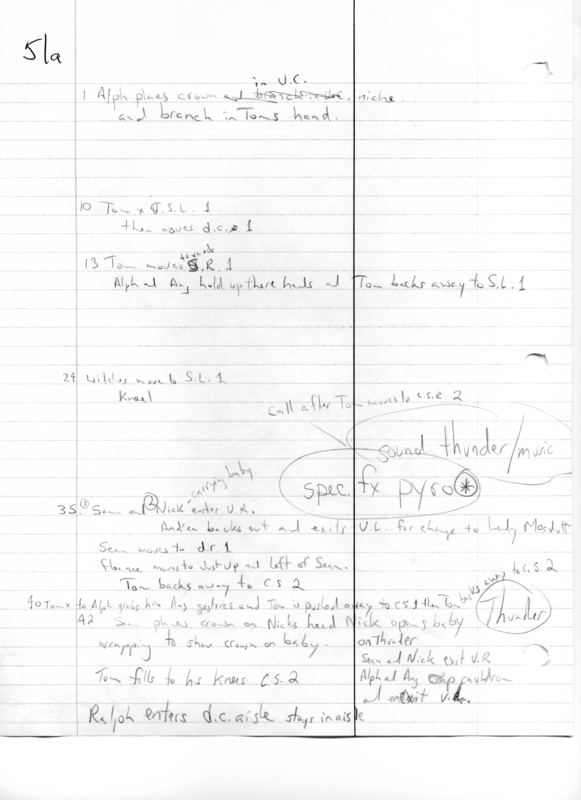 51a
in U.C.
1 Alph places crown and branch niche.
and branch in Toms hand.
10 Tom x D.S.L. 1
then moves d.c. 1
towards
13 Tom moves S.R. 1
Alph and Ang hold up there hands and Tom backs away to S.L. 1
24 witches move to S.L. 1
Kneel
call after Tom moves to C.S.R 2
sound thunder/music
spec. fx pyro *
carrying baby
35. 1 Sean and 2 Nick enter U.R.
Andrew backs out and exits U.L. for change to Lady Macduff
Sean moves to d.r. 1
Florence moves to Just up and left of Sean.
Tom backs away to C S 2
40 Tom x to Alph grabs him Ang gestures and Tom is pushed away to C.S 1 then Tom backs away to C.S. 2
Thunder
42 Sean places crown on Nicks head Nick opens baby
wrapping to show crown on baby.
on Thunder
Sean and Nick exit U.R
Tom falls to his knees C.S. 2
Alph and Ang cauldron
and exit U.
Ralph enters d.c. aisle stays in aisle